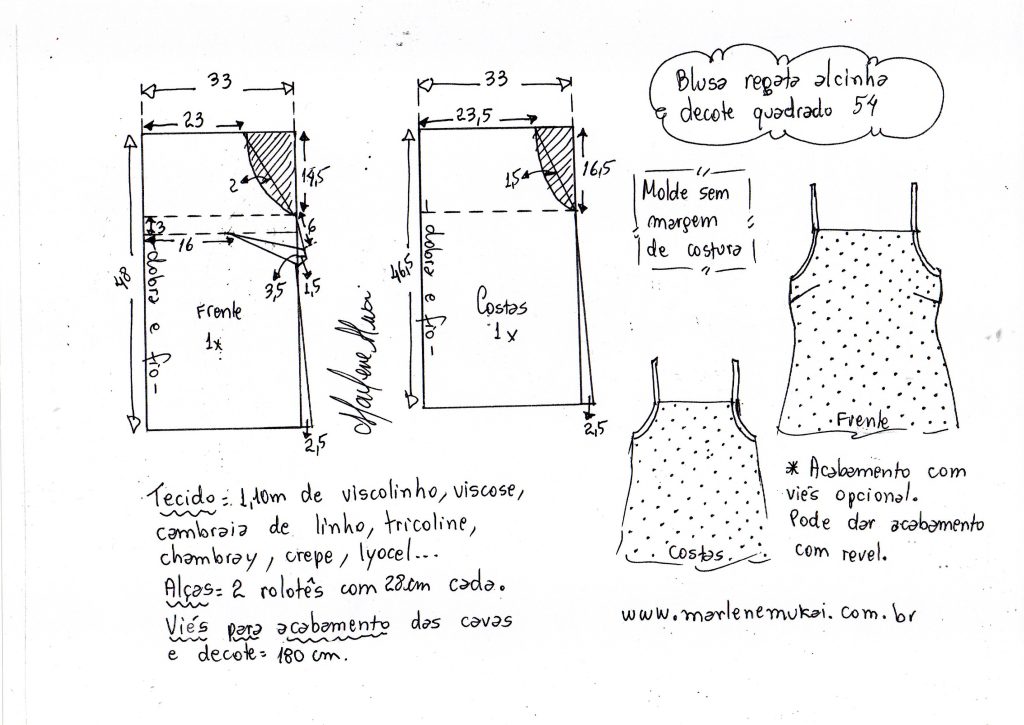 33
23
2
14,5
3
16
6
3,5
1,5
48
dobra e fio
Frente
1x
2,5
Marlene Mukai
33
23,5
1,5
16,5
46,5
dobra e fio
Costas
1x
2,5
Blusa regata alcinha
e decote quadrado 54
Molde sem
margem
de costura
Frente
Costas
* Acabamento com
viés opcional.
Pode dar acabamento
com revel.
www.marlenemukai.com.br
Tecido = 1,10m de viscolinho, viscose,
cambraia de linho, tricoline,
chambray, crepe, lyocel...
Alças = 2 rolotês com 28cm cada.
Viés para acabamento das cavas
e decote = 180 cm.